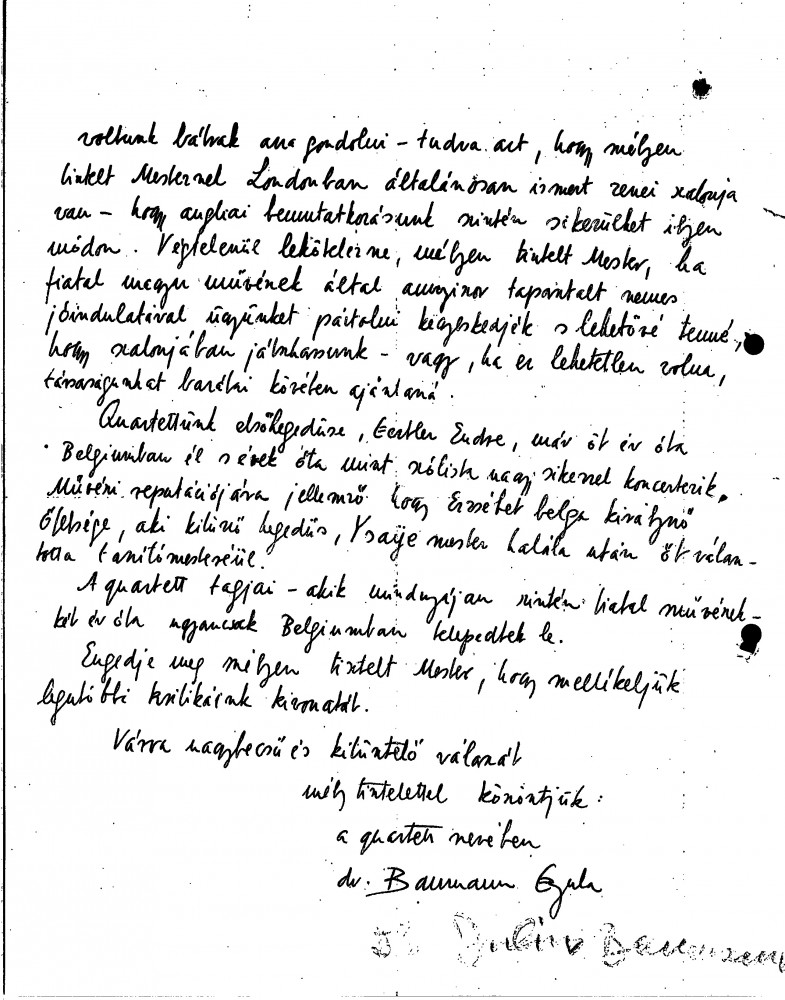 voltunk bátrak arra gondolni – tudva azt, hogy mélyen
tisztelt Mesternel Londonban általánosan ismert zenei szalonja
van – hogy angliai bemutatkozásunk szintén sikerülhet ilyen
módon. Végtelenül lekötelezne, mélyen tisztelt Mester, ha
fiatal magyar művészek által annyiszor tapasztalt nemes
jóindulatával ügyünket pártolni kegyeskedjék s lehetővé tenné,
hogy szalonjában játszhassunk – vagy, ha ez lehetetlen volna,
társaságunkat barátai körében ajánlaná.
Quartettünk elsőhegedűse, Gertler Endre, már öt év óta
Belgiumban él s évek óta mint szólista nagy sikerrel koncertezik.
Művészi reputációjára jellemző hogy Erzsébet belga királynő
Őfelsége, aki kitűnő hegedűs, Ysaÿe mester halála után őt válasz-
totta tanítómesteréül.
A quartett tagjai – akik mindnyájan szintén fiatal művészek –
két év óta ugyancsak Belgiumban telepedtek le.
Engedje meg mélyen tisztelt Mester, hogy mellékeljük
legutóbbi kritikáink kivonatát.
Várva nagybecsű és kitüntető válaszát
mély tisztelettel köszöntjük:
a quartett nevében
dr. Baumann Gyula
Dr Julius Baumann